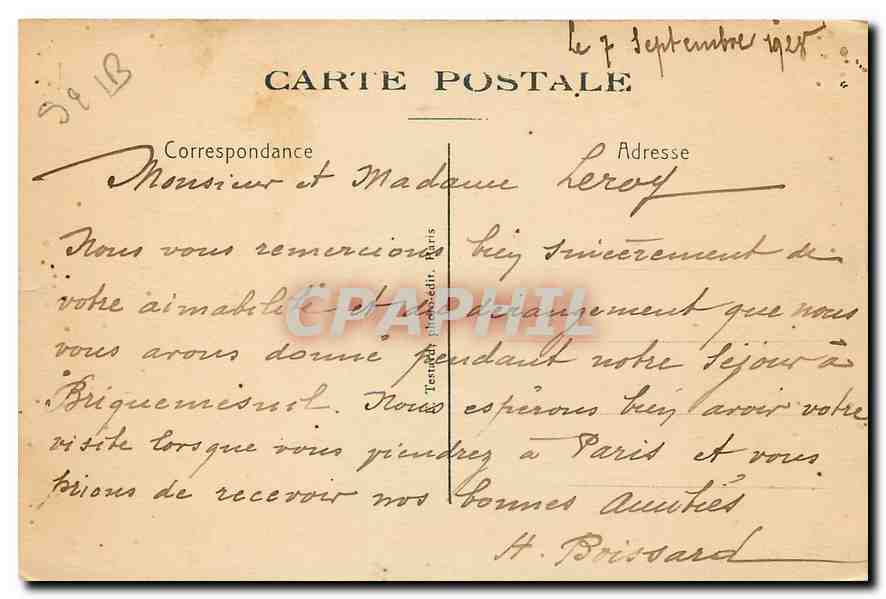 Le 7 Septembre 1928
59 1B
CARTE POSTALE
Correspondance
Adresse
Monsieur et Madame Leroy
Nous vous remercions bien sincèrement de
votre aimabilité et du dérangement que nous
vous avons donné pendant notre séjour à
Briquemesnil. Nous espérons bien avoir votre
visite lorsque vous viendrez à Paris et vous
prions de recevoir nos bonnes Amitiés
H. Boissard
Testard, photo-édit. Paris
CPAPHIL